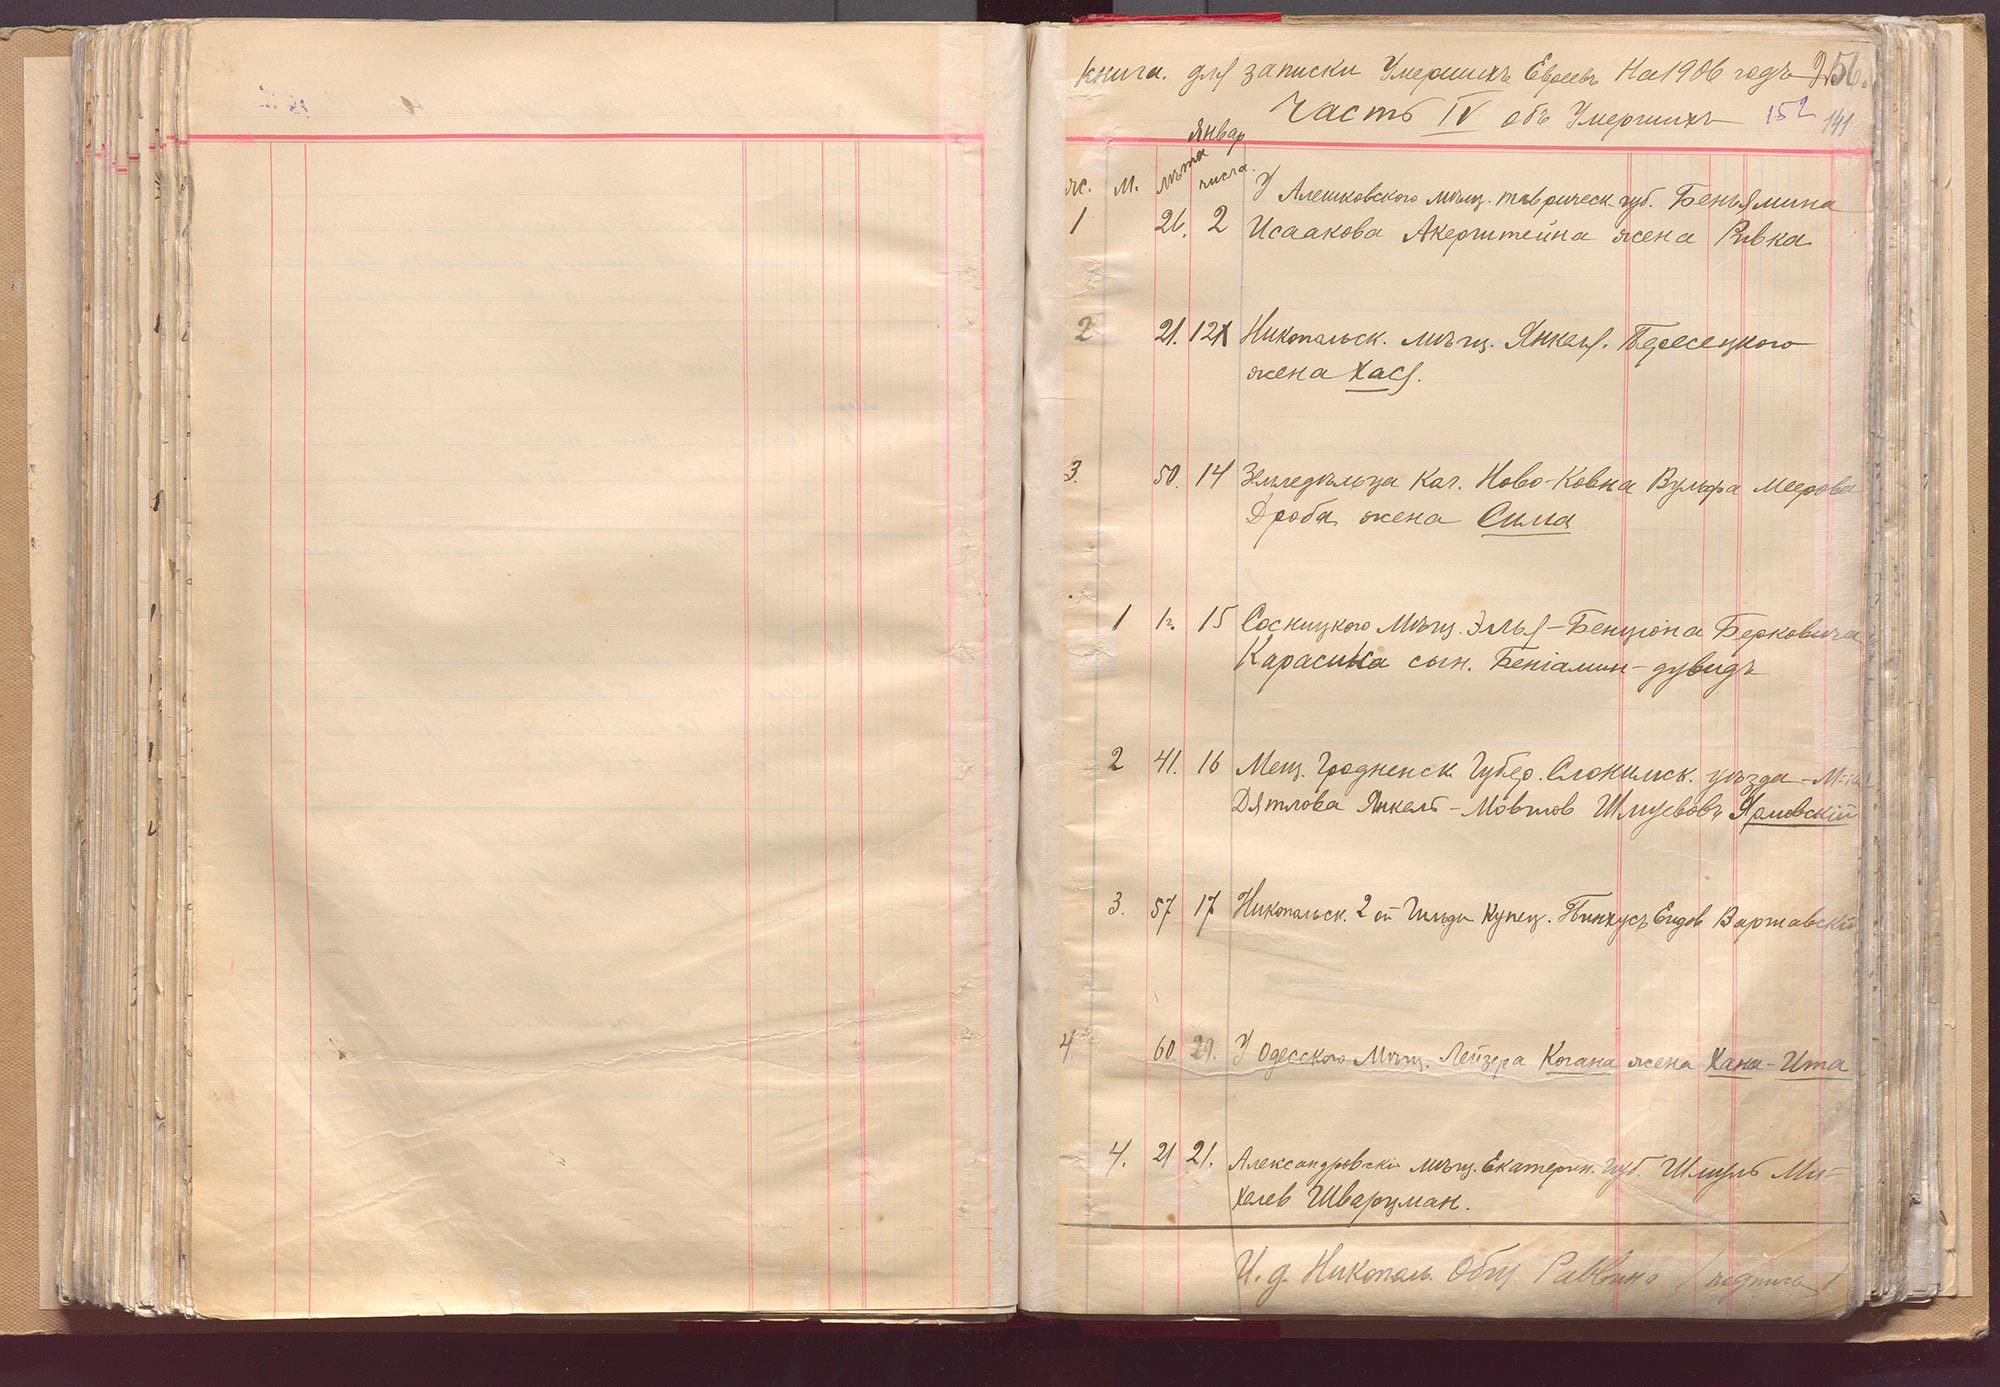 книга. для записки Умершихъ Евреевъ На 1906 годъ 256.
Часть IV объ Умершихъ 152 141
Январ
ж. м. лѣта числа.
У Алешковского мѣщ. таврическ. губ. Беньямина
1 26. 2 Исаакова Акерштейна жена Ривка
2 21. 12 Никопольск. мѣщ. Янкеля. Пересецкого
жена Хася.
3. 50. 14 Земледѣльца Кол. Ново-Ковна Вульфа Меерова
Дроба, жена Сима
1 1г. 15 Сосницкого Мѣщ. Элья-Бенціона Берковича
Карасика сын. Беніамин-дувидъ
2 41. 16 Мещ. Гродненск. Губер. Слонимск. уѣзда - М-ка
Дятлова Янкель-Мовшов Шлуевовъ Ярмовскій
3. 57 17 Никопольск. 2 ой Гильди Купец. Пинхусъ Еидов Варшавскій
4 60 29. У Одесского Мѣщ. Лейзера Когана жена Хана-Ита
4. 21 21. Александровскій мѣщ. Екатерин. Губ. Шмуль Ми-
хелев Шварцман.
И. д. Никополь. Общ. Раввина / подпись /